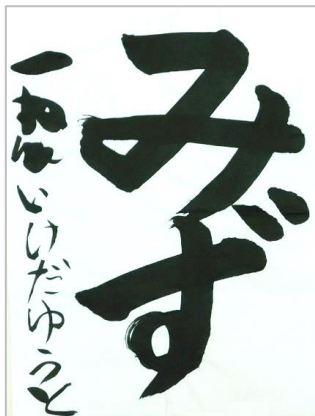 みず
一ねん いけだゆうと